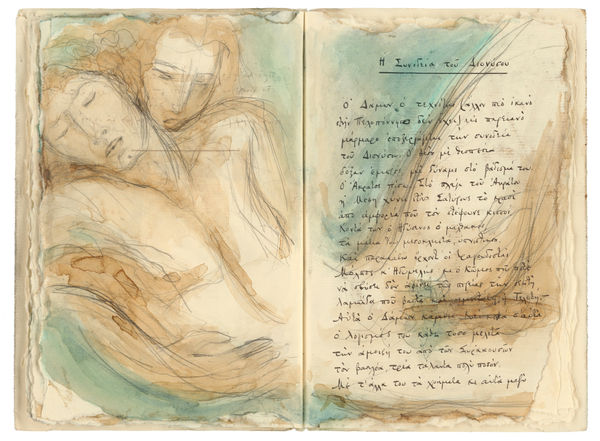 Η Συνοδεία τοῦ Διονύσου
Ὁ Δάμων ὁ τεχνίτης (ἄλλον πιὸ ἱκανὸ
στὴν Πελοπόννησο δὲν ἔχει) εἰς παριανὸ
μάρμαρο ἐπεξεργάζεται τὴν συνοδεία
τοῦ Διονύσου. Ὁ θεὸς μὲ θεσπεσία
δόξαν ἐμπρός, μὲ δύναμι στὸ βάδισμά του.
Ὁ Ἄκρατος πίσω. Στὸ πλάγι τοῦ Ἀκράτου
ἡ Μέθη χύνει στοὺς Σατύρους τὸ κρασὶ
ἀπὸ ἀμφορέα ποὺ τὸν στέφουνε κισσοί.
Κοντά των ὁ Ἡδύοινος ὁ μαλθακός,
τὰ μάτια του μισοκλειστά, ὑπνωτικός.
Καὶ παρακάτω ἔρχοντ' οἱ τραγουδισταὶ
Μόλπος κ' Ἡδυμελής, κι ὁ Κῶμος ποὺ ποτὲ
νὰ σβύσει δὲν ἀφίνει τῆς πορείας τὴν σεπτὴ
λαμπάδα ποὺ βαστᾶ· καί, σεμνοτάτη, ἡ Τελετή.—
Αὐτὰ ὁ Δάμων κάμνει. Καὶ κοντὰ σ' αὐτὰ
ὁ λογισμός του κάθε τόσο μελετᾶ
τὴν ἀμοιβή του ἀπὸ τῶν Συρακουσῶν
τὸν βασιλέα, τρία τάλαντα, πολὺ ποσόν.
Μὲ τ' ἄλλα του τὰ χρήματα κι αὐτὰ μαζύ